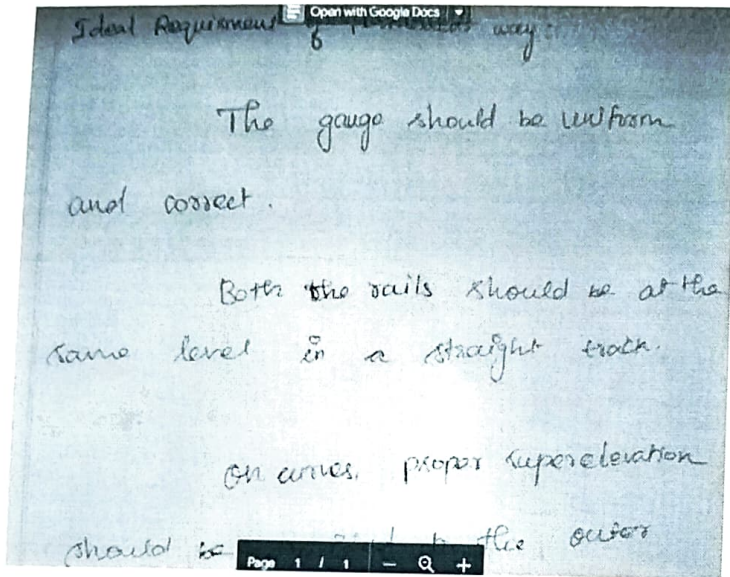 Open with Google Docs
Ideal Requirment way:
The gauge should be uniform
and correct.
Both the rails should be at the
same level in a straight track.
On curves, proper superelevation
should be the outer
Page 1 / 1